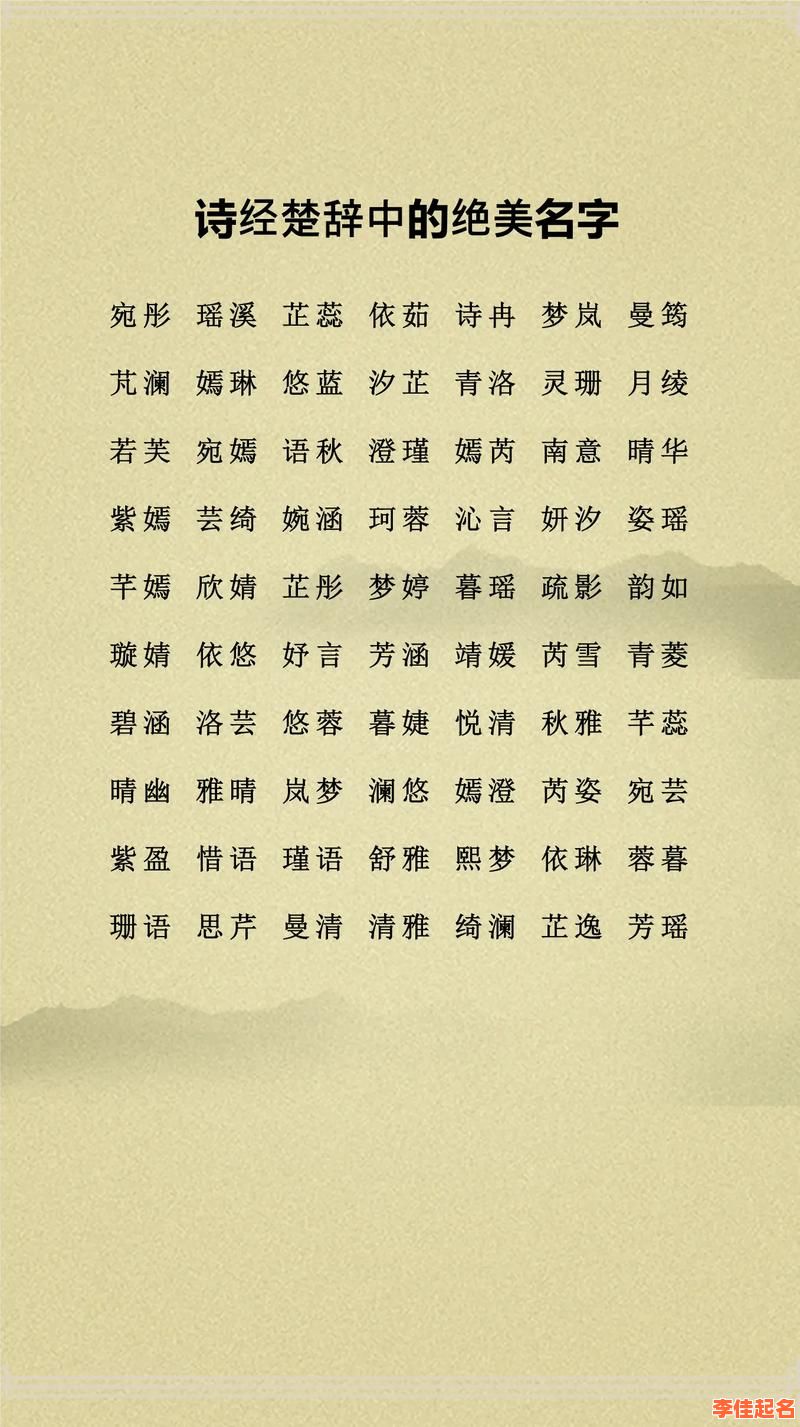 诗经楚辞中的绝美名字
宛彤 瑶溪 芷蕊 依茹 诗冉 梦岚 曼筠
芃澜 嫣琳 悠蓝 汐芷 青洛 灵珊 月绫
若芙 宛嫣 语秋 澄瑾 嫣芮 南意 晴华
紫嫣 芸绮 婉涵 珂蓉 沁言 妍汐 姿瑶
芊嫣 欣婧 芷彤 梦婷 暮瑶 疏影 韵如
璇婧 依悠 妤言 芳涵 靖媛 芮雪 青菱
碧涵 洛芸 悠蓉 暮婕 悦清 秋雅 芊蕊
晴幽 雅晴 岚梦 澜悠 嫣澄 芮姿 宛芸
紫盈 惜语 瑾语 舒雅 熙梦 依琳 蓉暮
珊语 思芹 曼清 清雅 绮澜 芷逸 芳瑶
李佳起名